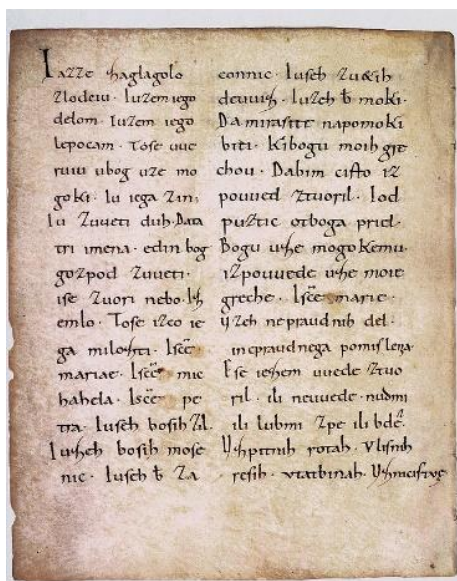 Iazze zaglagolo
zlodeiu · Iuzem iego
delom · Iuzem iego
lepocam · Tose uue
ruiu ubog uze mo
goki · Iu iega zin;
Iu zuueti duh · Data
tri imena · edin bog
gozpod zuueti ·
ise zuori nebo · Iz
emlo · Tose izco ie
ga milozti · Iscē
mariae · Iscē mic
hahela · Iscē pe
tra · Iuseh bosih zil ·
Iuzeh bosih mose
nic · Iuseh b̄ za
connic · Iuseh zuetih
deuuiz · Iuzeh b̄ moki ·
Da mirasite napomoki
biti · Kibogu moih gre
chou · Dabim cisto iz
pouued ztuoril · Iod
puztic otboga priel ·
Bogu uze mogokemu ·
izpouuede uze moie
greche · Iscē marie ·
Uzeh nepraudnih del ·
inepraudnega pomislenia
Ese iesem uuede ztuo
ril · ili neuuede · nudmi
ili lubmi zpe ili bde ·
Uzpitnih rotah · Vlisnih
resih · vtatbinah · Uznicistve